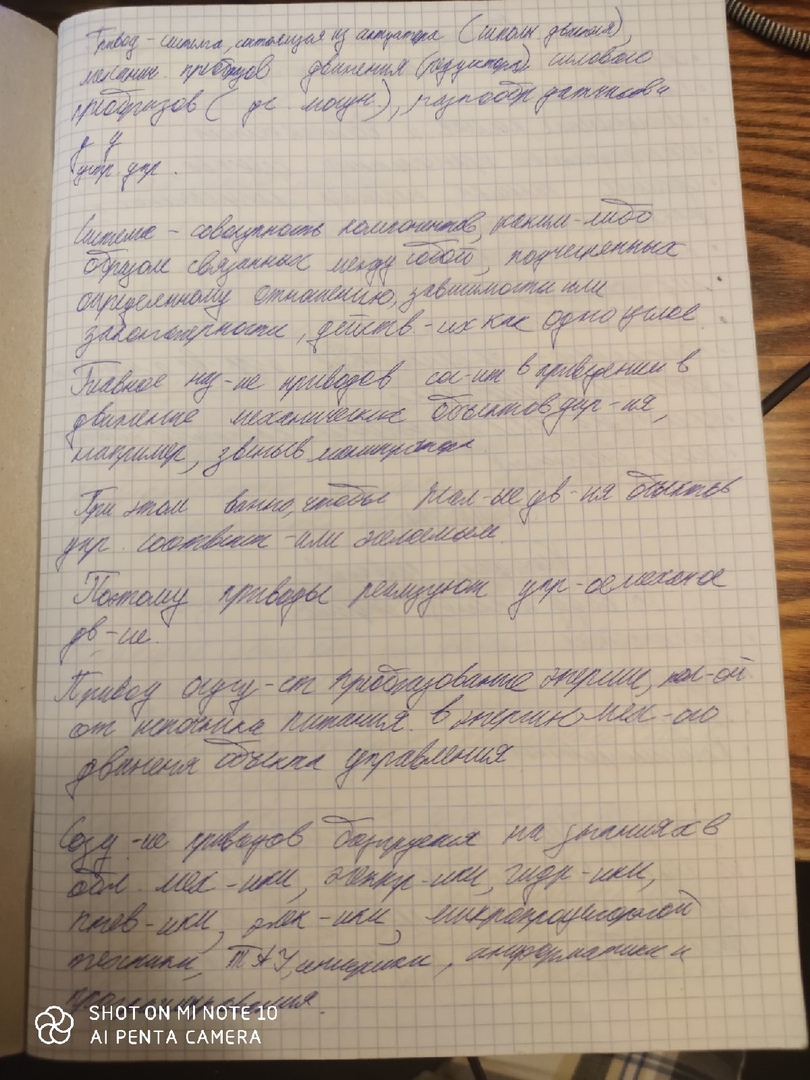 Привод - система, состоящая из актуатора (движения),
механич. преобразов движения (редуктора), силового
преобразов ( ус. мощн.), датчиков и
у у
упр.
Система - совокупность компонентов, каким-либо
образом связанных между собой, подчиненных
определенному отношению, зависимости или
закономерности, действ-их как одно целое
Главное наз-ие приводов сос-ит в приведении в
движение механических объектов упр-ия,
например, звеньев манипулятора
При этом важно, чтобы дв-ия объектов
упр. соответст-ли желаемым.
Поэтому приводы реализуют упр-ое механ-ое
дв-ие.
Привод осущ-ет преобразование энергии, пол-ой
от источника питания в энергию мех-ого
движения объекта управления
Созд-ие приводов базируется на знаниях в
обл. мех-ики, электр-ики, гидр-ики,
пнев-ики, элек-ики, микропроцессорной
техники, ТАУ, информатики и
программирования.
SHOT ON MI NOTE 10
AI PENTA CAMERA